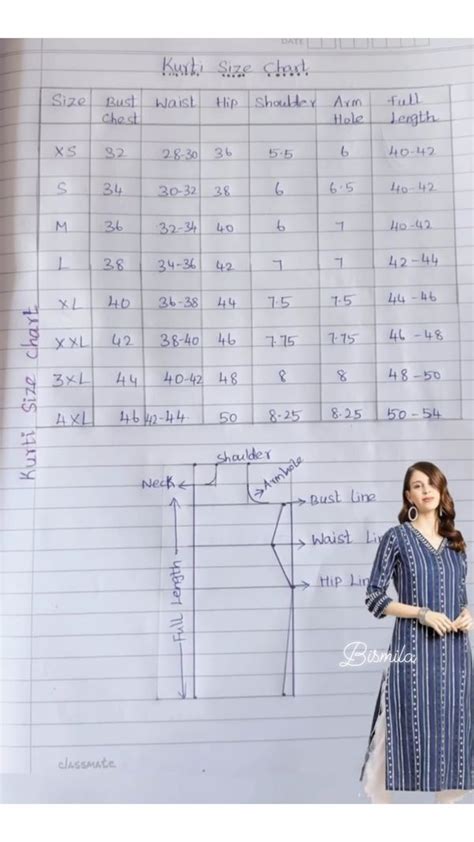 DATE
Kurti Size Chart
Size Bust Chest Waist Hip Shoulder Arm Hole Full Length
XS 32 28-30 36 5.5 6 40-42
S 34 30-32 38 6 6.5 40-42
M 36 32-34 40 6 7 40-42
L 38 34-36 42 7 7 42-44
XL 40 36-38 44 7.5 7.5 44-46
XXL 42 38-40 46 7.75 7.75 46-48
3XL 44 40-42 48 8 8 48-50
4XL 46 42-44 50 8-25 8.25 50-54
Kurti Size Chart
Shoulder
Neck
Armhole
Bust Line
Waist Lin
Hip Lin
Full Length
Bismila
classmate